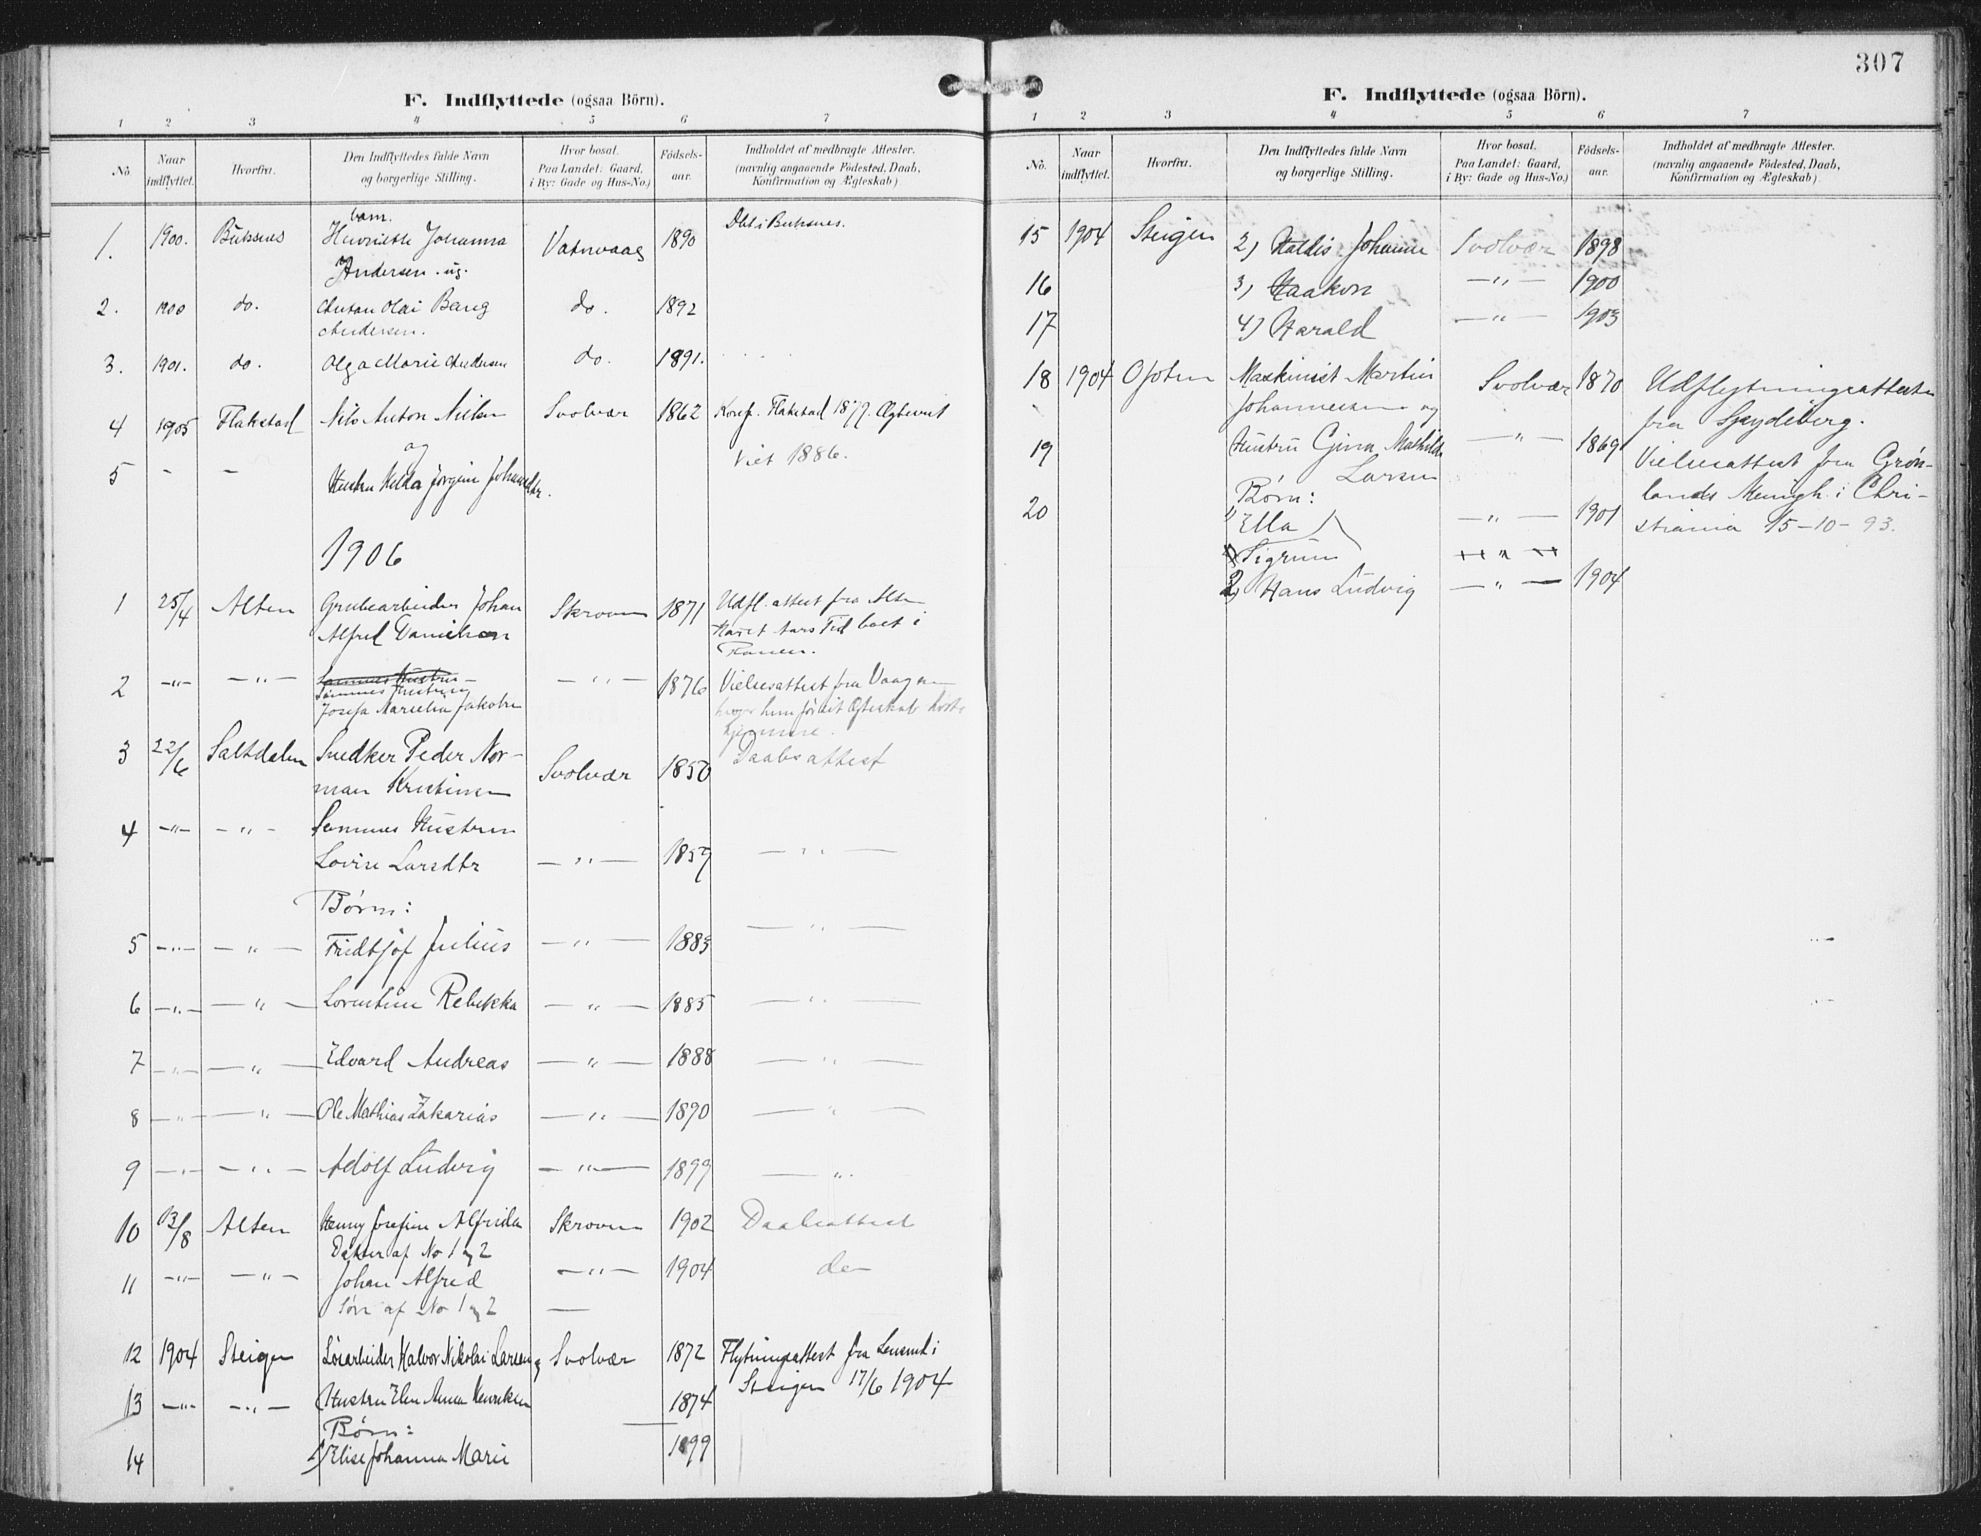 F. Indflyttede (ogsaa Börn).
1 2 3 4 5 6 7
No. Naar indflyttet. Hvorfra. Den Indflyttedes fulde Navn og borgerlige Stilling. Hvor bosat. Paa Landet: Gaard, i By: Gade og Hus-No.) Födsels-aar. Indholdet af medbragte Attester. (navnlig angaaende Födested, Daab, Konfirmation og Ægteskab)
1. 1900. Buksnes Henriette Johanna Vatnvaag 1890 Døbt i Buksnes.
Andersen. ug.
2. 1900 do. Anton Olai Bang do. 1892
Andersen.
3. 1901. do. Olga Marie Andersen do. 1891.
4 1905 Flakstad Nils Anton Nilsen Svolvær 1862 Konf. Flakstad 1877.
og Viet 1886.
5 - - Hustru Helda Jørgine
1906
1 25/4 Alten Grubearbeider Johan Skroven 1871 Udfl. attest fra Alten
Alfred Danielsen Havet tid boet i
Ranen.
2 -"- -"- Sammes Hustru -"- 1876 Vielsesattest fra Vaagan
Josefa Marselia Jakobsen
hjemme.
3 22/6 Saltdalen Snedker Peder Nor- Svolvær 1850 Daabsattest
man Kristiansen
4 -"- -"- Sammes Hustru
Lovise Larsdtr -"- 1857 -"-
Børn:
5 -"- -"- Fridtjof Julius -"- 1883 -"-
6 -"- -"- Lorentine Rebekka -"- 1885 -"-
7 -"- -"- Edvard Andreas -"- 1888 -"-
8 -"- -"- Ole Mathias Zakarias -"- 1890 -"-
9 -"- -"- Adolf Ludvig -"- 1899 -"-
10 13/8 Alten Henny Josefine Alfrida Skroven 1902 Daabsattest
Datter af No 1 og 2
11 -"- -"- Johan Alfred -"- 1904 do
Søn af No 1 og 2
12 1904 Steigen Løsarbeider Halvor Nikolai Larsen og Svolvær 1872 Flytningsattest fra Lensmd i
Steigen 17/6 1904
13 -"- -"- Hustru Elen Anna Henriksen 1874
Børn:
14 1) Elise Johanna Marie 1899
307
F. Indflyttede (ogsaa Börn).
1 2 3 4 5 6 7
No. Naar indflyttet. Hvorfra. Den Indflyttedes fulde Navn og borgerlige Stilling. Hvor bosat. Paa Landet: Gaard, i By: Gade og Hus-No.) Födsels-aar. Indholdet af medbragte Attester. (navnlig angaaende Födested, Daab, Konfirmation og Ægteskab)
15 1904 Steigen 2) Haldis Johanne Svolvær 1898
16 3) Haakon -"- 1900
17 4) Harald -"- 1903
18 1904 Ofoten Maskinist Martin Svolvær 1870 Udflytningsattest
Johannesen og fra Spydeberg.
19 Hustru Gina Mathilde -"- 1869 Vielsesattest fra Grøn-
Larsen lands Menigh. i Chri-
Børn:
20 1) Ella -"- 1901 stiania 15-10-93.
Sigrun
2) Hans Ludvig -"- 1904